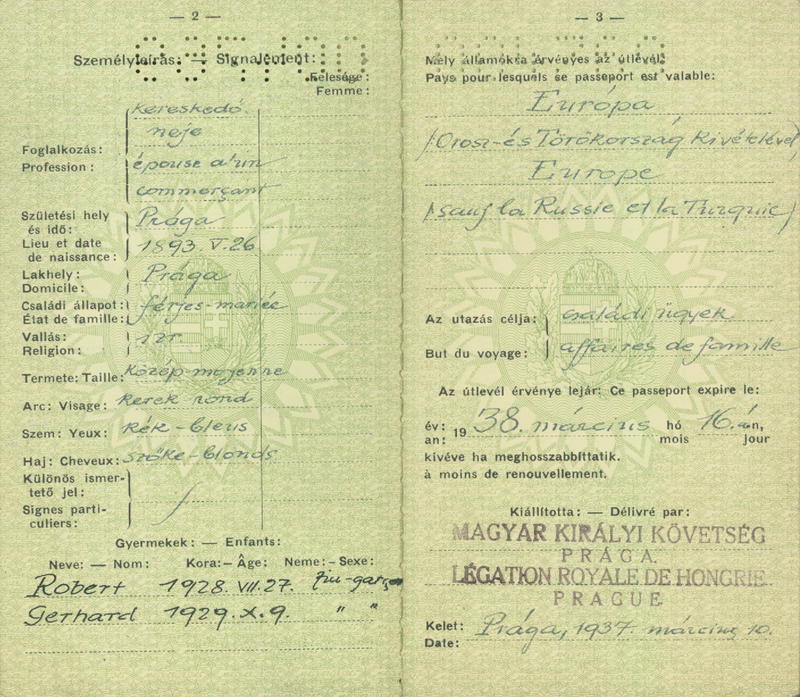 — 2 —
Személyleírás: — Signalement:
Felesége:
Femme:
Foglalkozás:
Profession:
kereskedő
neje
épouse d'un
commerçant
Születési hely
és idő:
Lieu et date
de naissance:
Prága
1893. V. 26
Lakhely:
Domicile:
Prága
Családi állapot:
État de famille:
férjes-mariée
Vallás:
Religion:
izr.
Termete: Taille: közép-moyenne
Arc: Visage: kerek rond
Szem: Yeux: kék-bleus
Haj: Cheveux: szőke-blonds
Különös ismer-
tető jel:
Signes parti-
culiers:
Gyermekek: — Enfants:
Neve: — Nom: Kora: — Âge: Neme: - Sexe:
Robert 1928. VII. 27. fiu-garçon
Gerhard 1929. X. 9. " "
— 3 —
Mely államokra érvényes az útlevél:
Pays pour lesquels se passeport est valable:
Európa
/Orosz-és Törökország kivételével/
Europe
/sauf la Russie et la Turquie/
Az utazás célja: családi ügyek
But du voyage: affaires de famille
Az útlevél érvénye lejár: Ce passeport expire le:
év: 1938. március hó 16.-án,
an: mois jour
kivéve ha meghosszabbíttatik.
à moins de renouvellement.
Kiállította: — Délivré par:
MAGYAR KIRÁLYI KÖVETSÉG
PRÁGA.
LÉGATION ROYALE DE HONGRIE
PRAGUE
Kelet: Prága, 1937. március 10.
Date: